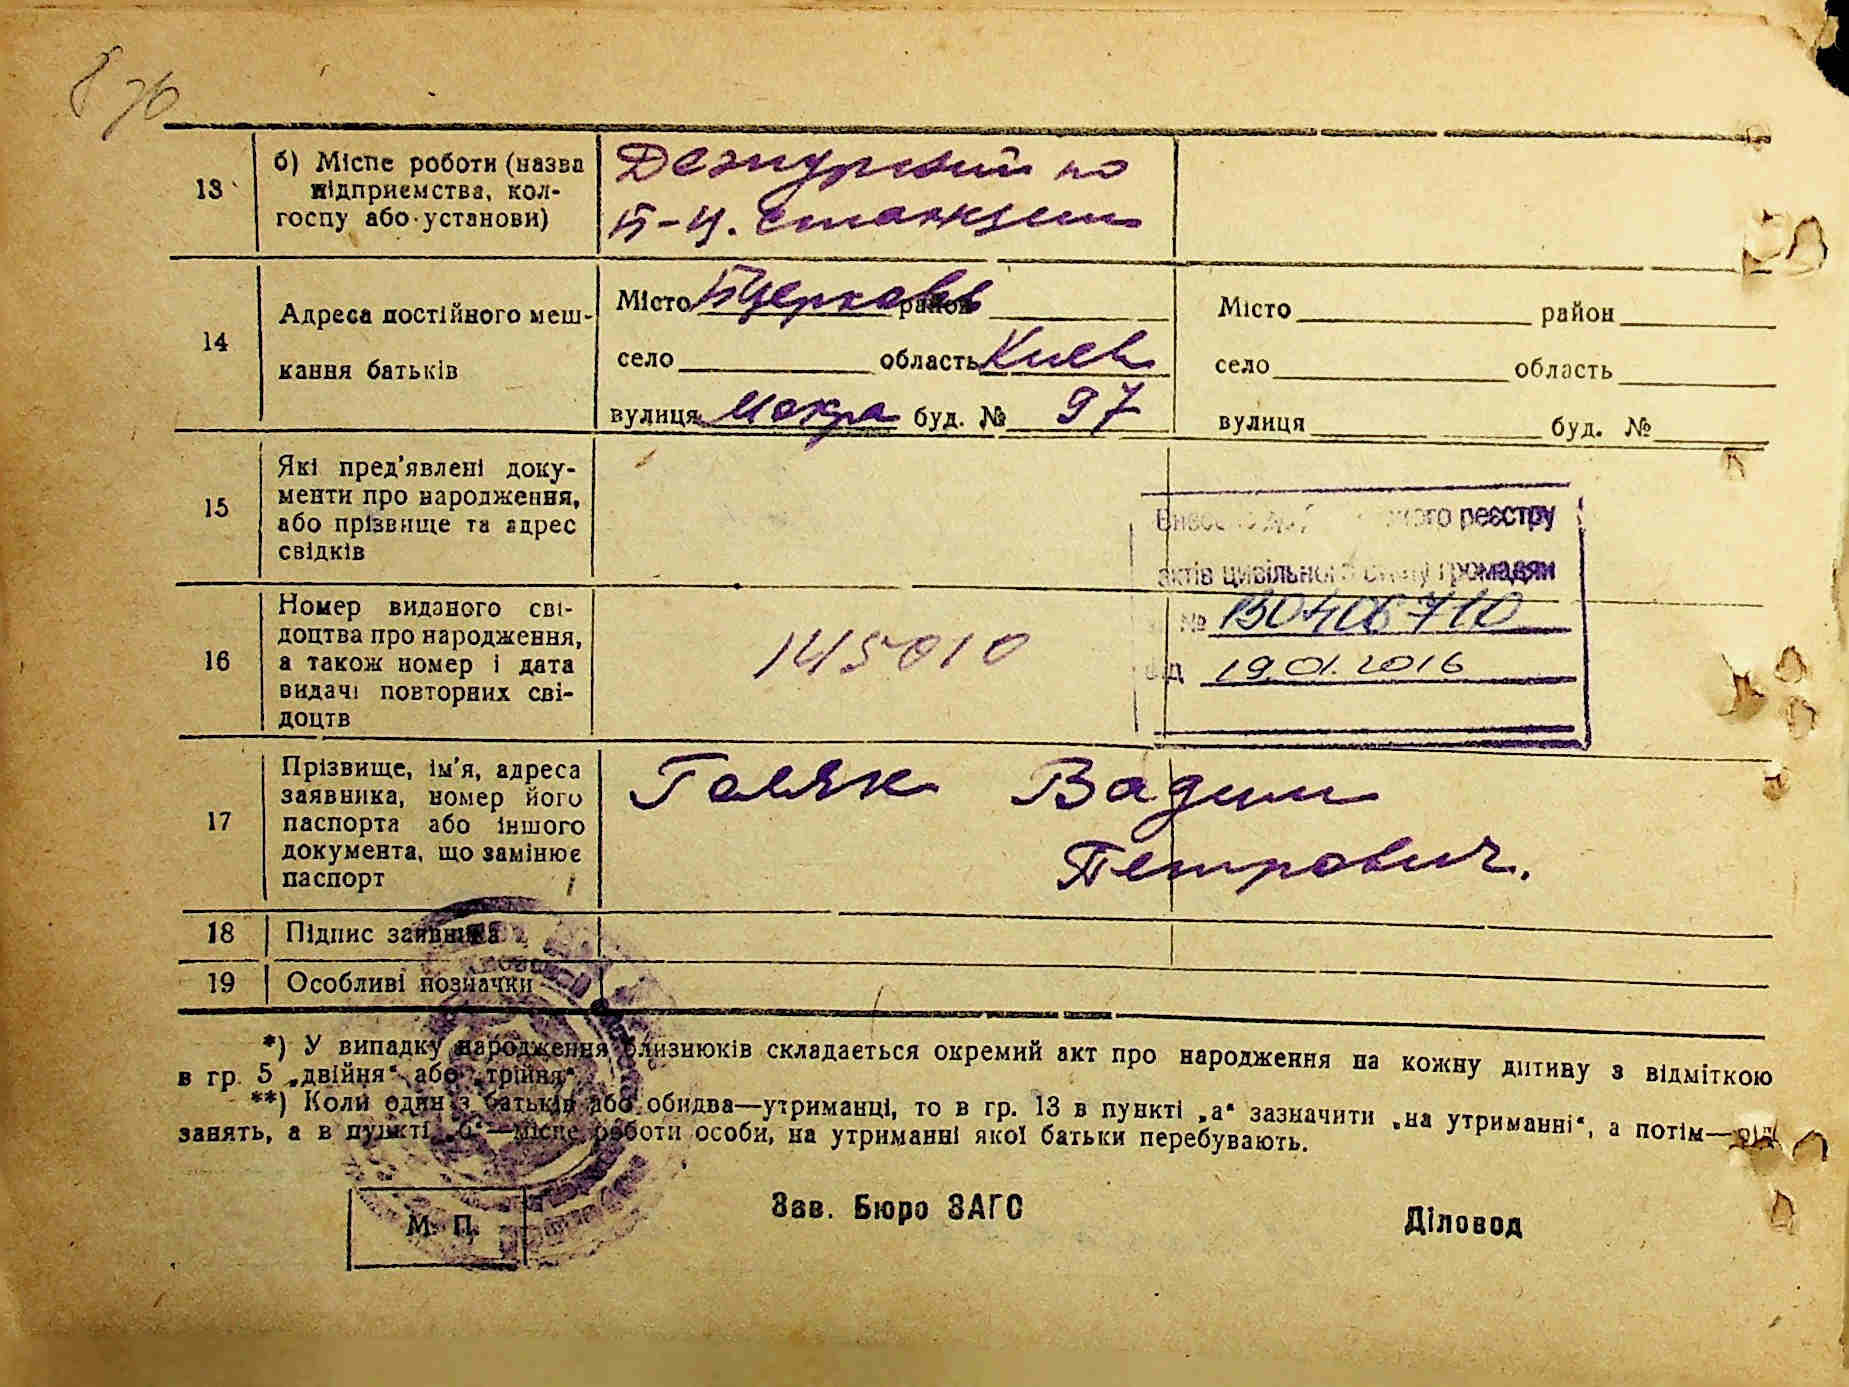 13 б) Місце роботи (назва підприємства, кол-
госпу або установи)
Дежурный по
Б-Ц. станции
14 Адреса постійного меш-
кання батьків
Місто Бцерковь район
село область Киев
вулиця Мокра буд. № 97
Місто район
село область
вулиця буд. №
15 Які пред'явлені доку-
менти про народження,
або прізвище та адрес
свідків
реєстру
актів цивільного стану громадян
№ 130406710
від 19.01.2016
16 Номер виданого сві-
доцтва про народження,
а також номер і дата
видачі повторних сві-
доцтв
145010
17 Прізвище, ім'я, адреса
заявника, номер його
паспорта або іншого
документа, що замінює
паспорт
Голяк Вадим
Петрович.
18 Підпис заявника
19 Особливі позначки
*) У випадку народження близнюків складається окремий акт про народження на кожну дитину з відміткою
в гр. 5 „двійня“ або „трійня“.
**) Коли один з батьків або обидва—утриманці, то в гр. 13 в пункті „а“ зазначити „на утриманні“, а потім—рід
занять, а в пункті „б“—місце роботи особи, на утриманні якої батьки перебувають.
М. П.
Зав. Бюро ЗАГС
Діловод